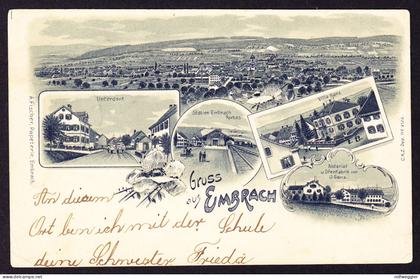 Unterdorf
Station Embrach
Rorbas
Villa
Notariat
u. Ofenfabrik von
J. Ganz
Gruss
aus EMBRACH
A. Fischer, Papeterie, Embrach.
An diesem
Ort bin ich mit der Schule
deine Schwester Frieda